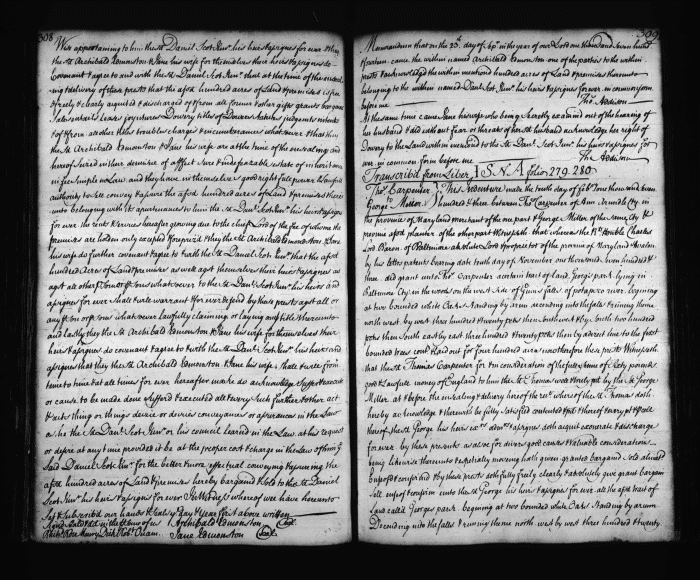 308
Wise appertaining to him the sd. Daniel Scot Junr. his heirs & assigns for ever & they
the sd. Archibald Edmonston & Jane his wife for themselves their heirs & assigns do
Covenant & agree to and with the sd. Daniel Scot Junr. that at the time of the ensealing
& delivery of these presents that the afsd. hundred acres of Land & premises is free
& freely & clearly acquitted & discharged of & from all former & other gifts grants bargains
Sales entails Leases joyntures Dowers titles of Dowers Statutes judgments extents
& of & from all other titles troubles charges & incumbrances whatsoever & that they
the sd. Archibald Edmonston & Jane his wife are at the time of the ensealing and
hereof Seized in their demesne of a perfect sure & indefeazable estate of inheritance
in fee simple in Law and they have in themselves good right full power & lawfull
authority to sell convey & assure the afsd. hundred acres of Land & premises
unto belonging with its apurtenances to him the sd. Danl. Scot Junr. his heirs & assigns
for ever the rents & services hereafter growing due to the chief Lord of the fee of whome the
premises are holden only excepted & they the sd. Archibald Edmonston & Jane
his wife do further covenant & agree to & with the sd. Daniel Scot Junr. that the afsd.
hundred Acres of Land & premises as well agst. themselves their heirs & assigns as
agst. all other persons whatsoever to the sd. Danl. Scot Junr. his heirs and
assigns for ever shall & will warrant & for ever defend by these presents agst. all or
any person or persons whatsoever lawfully claiming or laying any title thereunto
and lastly they the sd. Archibald Edmonston & Jane his wife for themselves their
heirs & assigns do covenant & agree to & with the sd. Danl. Scot Junr. his heirs and
assigns that they the sd. Archibald Edmonston & Jane his wife shall & will from
time to time & at all times for ever hereafter make do acknowledge Suffer & execute
or cause to be made done Suffered & executed all & every such further & other act
& acts thing or things devise or devises conveyances or assurances in the Law
as he the sd. Danl. Scot Junr. or his council learned in the Law at his request
or desire at any time provided it be at the proper cost & charge in the Law of him ye
Said Daniel Scot Junr. for the better & more effectual conveying & assuring the
afsd. hundred acres of Land & premises hereby bargained & sold to the sd. Daniel
Scot Junr. his heirs & assigns for ever In Witness whereof we have hereunto
Set & Subscribed our hands & seals ye day & year first above written
Signed Sealed & dd. in the presence of us } Archibald Edmonston (Seal)
Jane Edmonston (Seal)
309
Memorandum that on the 25th. day of in the year of our Lord one thousand Seven hundred
& came the within named Archibald Edmonston one of the parties to the within
presents & acknowledged the within mentioned hundred acres of Land & premises thereunto
belonging to the within named Danl. Scot Junr. his heirs & assigns for ever in common form
before me Tho. Addison
At the same time came Jane his wife who being Secretly examined out of the hearing of
her husband & did without fear or threats of her sd. husband acknowledge her right of
Dowry to the Land within mentioned to the sd. Danl. Scot Junr. his heirs & assigns for
ever in common form before me Tho. Addison
Transcrib'd from Liber I S. N. A folio 279. 280
Tho. Carpenter } This Indenture made the tenth day of one thousand seven
to George Mitton } hundred & three between Tho. Carpenter of Ann Arundle Cty. in
the province of Maryland merchant of the one part & George Mitton of the same Cty. &
province afsd. planter of the other part Witnesseth that whereas the Rt. Honble. Charles
Lord Baron of Baltimore absolute Lord & proprietor of the province of Maryland & Avalon
by his letters patents bearing date tenth day of November one thousand Seven hundred &
three did grant unto Tho. Carpenter a certain tract of land Georges park lying in
Baltimore Cty. in the woods on the west Side of Gunns falls of potapsco river. beginning
at two bounded white Oaks standing by a run descending into the falls & running thence
north west by west three hundred & twenty poles then South west by South two hundred
poles then South east by east three hundred & twenty poles then by a direct line to the first
bounded trees cont. & laid out for four hundred acres more or less these presents Witnesseth
that the sd. Thomas Carpenter for & in consideration of the full sum of Sixty pounds
good & lawful money of England to him the sd. Thomas was truly pd. by the sd. George
Mitton at & before the ensealing & delivery hereof the rect. whereof the sd. Thomas doth
hereby acknowledge & thereunto be fully satisfied contented & pd. & thereof & every pt. & parcel
thereof the sd. George his heirs exrs. admrs. & assigns doth acquit exonerate & discharge
for ever by these presents as also for divers good causes & valuable considerations
being likewise thereunto especially moving hath given granted bargained Sold aliened
enfeofed & confirmed & by these presents doth fully freely clearly & absolutely give grant bargain
sell enfeof & confirm unto the sd. George his heirs & assigns for ever all the afsd. tract of
Land called Georges park begining at two bounded white Oaks Standing by a run
Descending into the falls & running thence north west by west three hundred & twenty